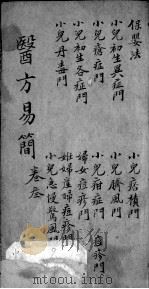 保嬰法
小兒初生異症門
小兒初生各症門
小兒瘡症門
小兒丹毒門
小兒積門
小兒臍風門
小兒疳症門
婦女痘疹門
妊婦產婦痘疹門
小兒急慢驚風門
醫方易簡 卷叁